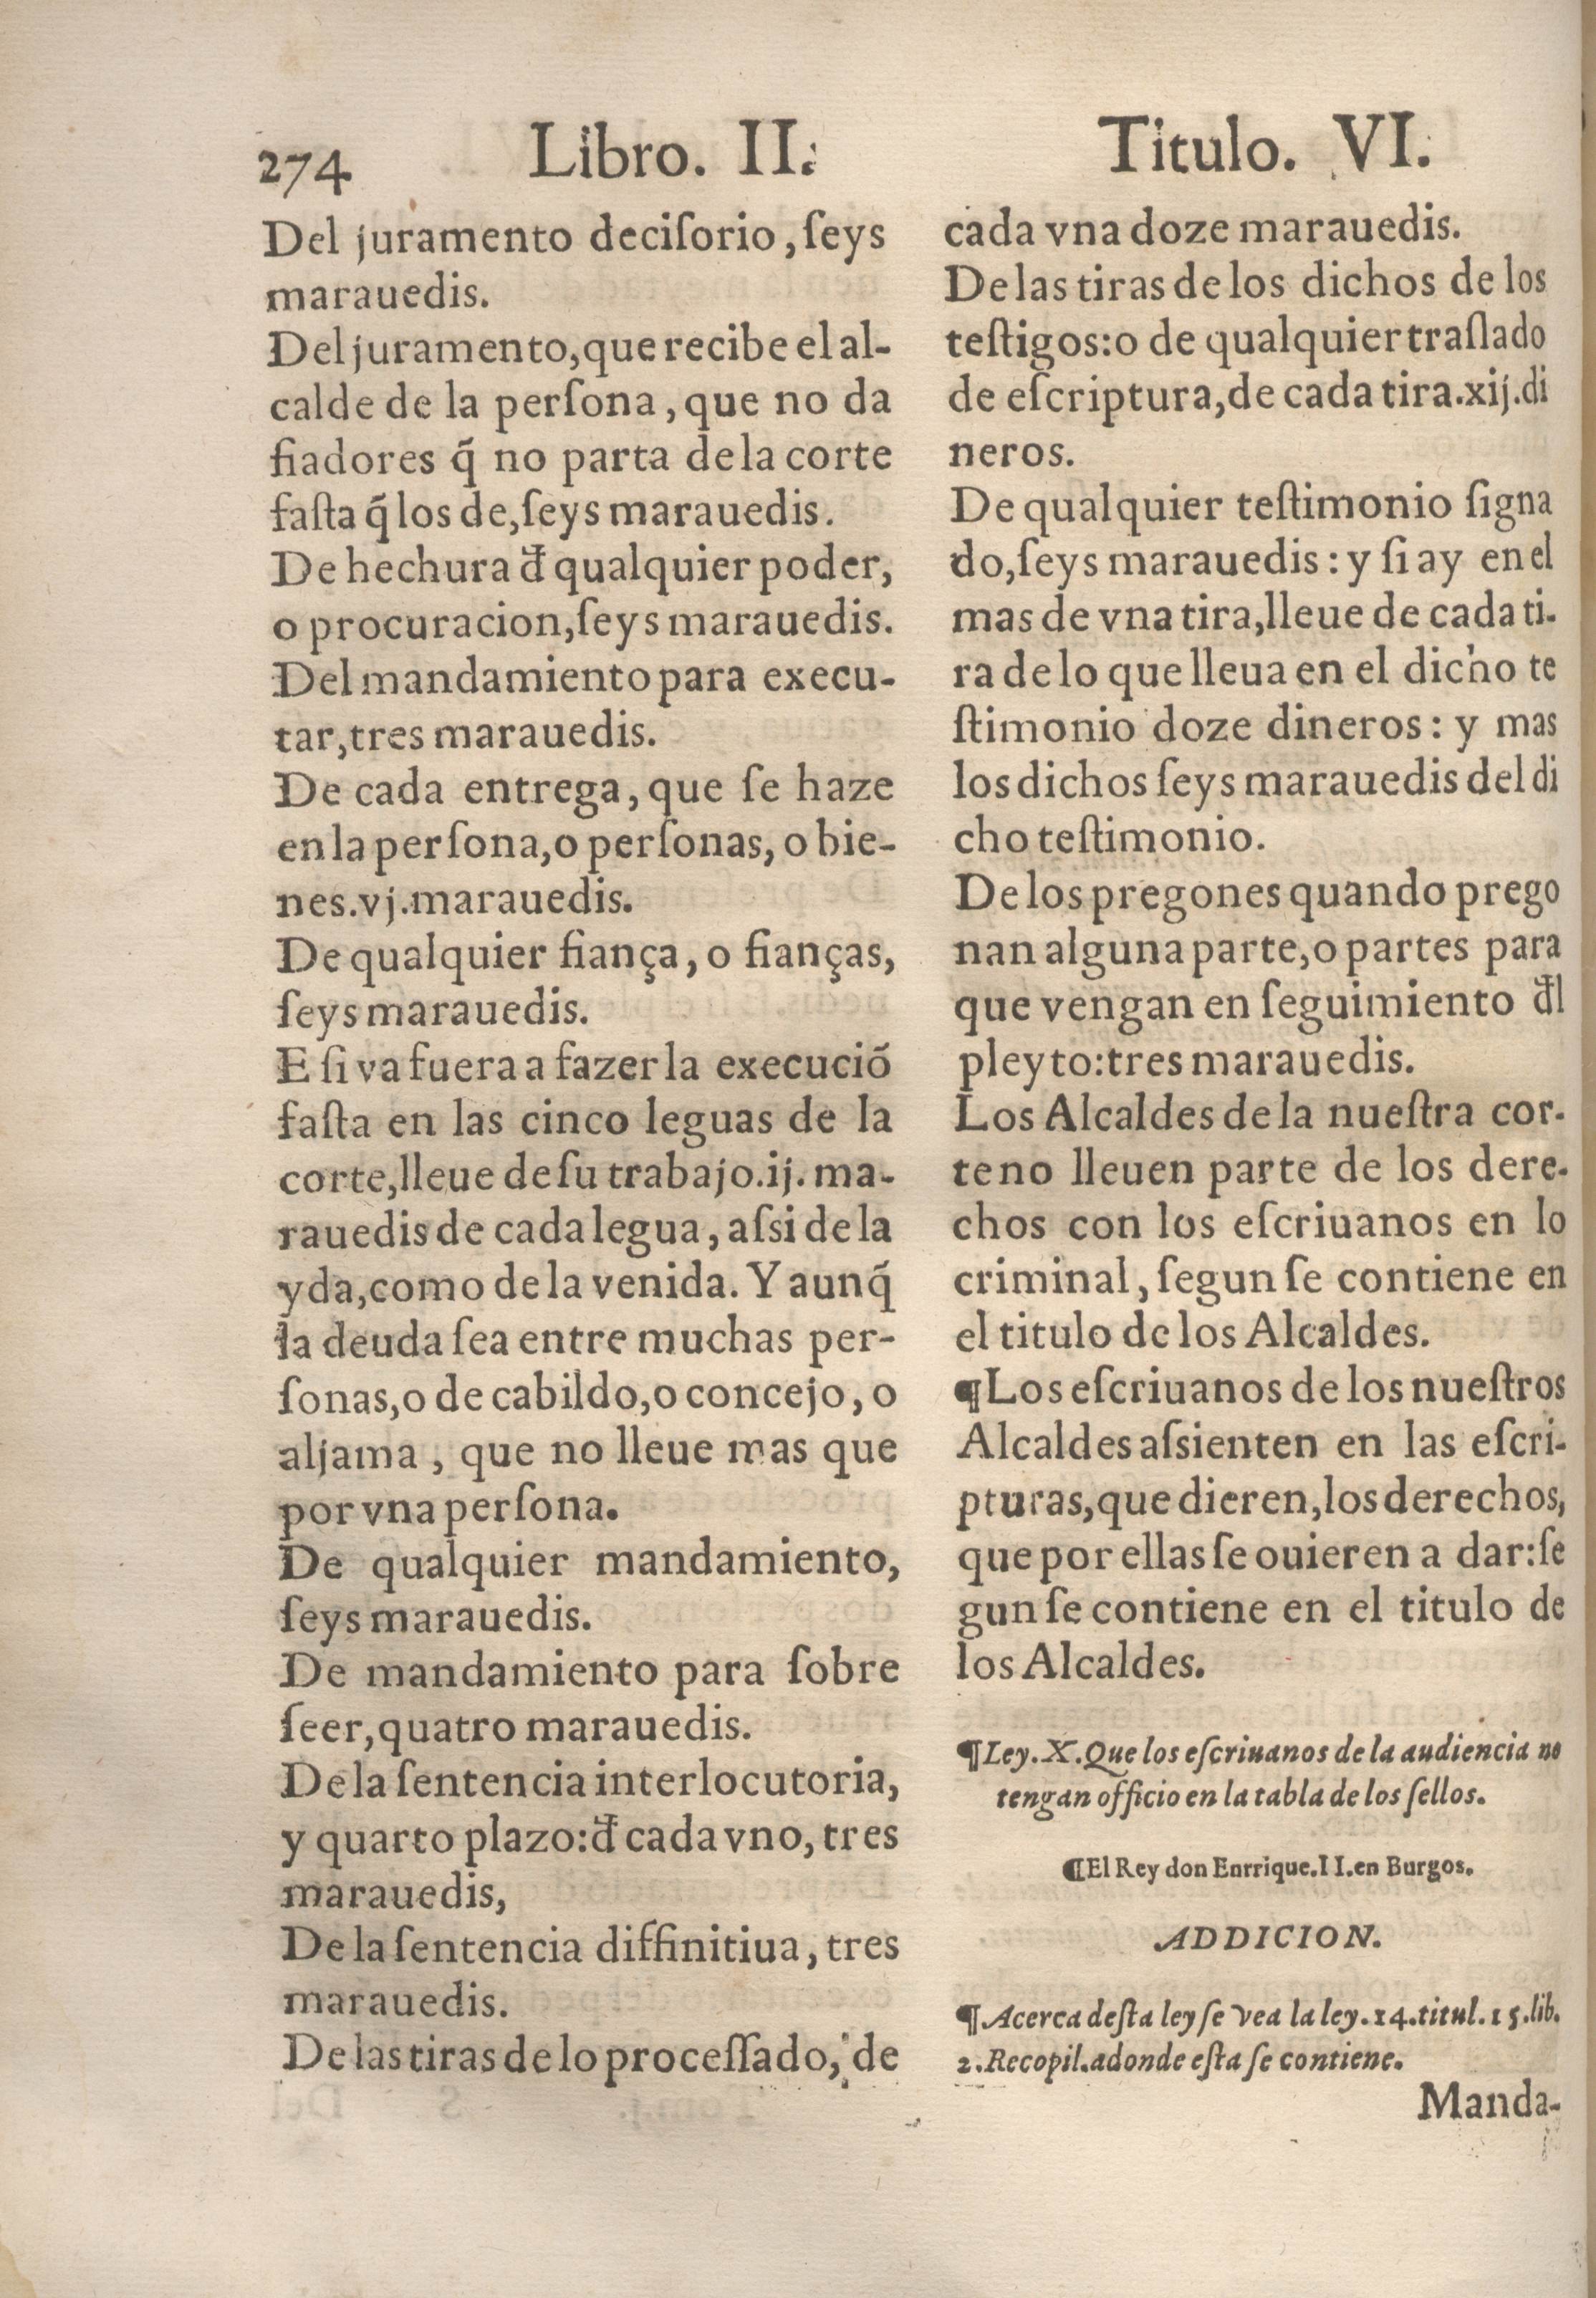 274 Libro. II. Titulo. VI.
Del juramento deciſorio, ſeys
marauedis.
Del juramento, que recibe el al-
calde de la perſona, que no da
fiadores q̃ no parta dela corte
faſta q̃ los de, ſeys marauedis.
De hechura đ qualquier poder,
o procuracion, ſeys marauedis.
Del mandamiento para execu-
tar, tres marauedis.
De cada entrega, que ſe haze
en la perſona, o perſonas, o bie-
nes. vj. marauedis.
De qualquier fiança, o fianças,
ſeys marauedis.
E ſi va fuera a fazer la execuciõ
faſta en las cinco leguas de la
corte, lleue de ſu trabajo. ij. ma-
rauedis de cada legua, aſsi de la
yda, como de la venida. Y aunq̃
la deuda ſea entre muchas per-
ſonas, o de cabildo, o concejo, o
aljama, que no lleue mas que
por vna perſona.
De qualquier mandamiento,
ſeys marauedis.
De mandamiento para ſobre
ſeer, quatro marauedis.
De la ſentencia interlocutoria,
y quarto plazo: đ cada vno, tres
marauedis,
De la ſentencia diffinitiua, tres
marauedis.
De las tiras de lo proceſſado, de
cada vna doze marauedis.
De las tiras de los dichos de los
teſtigos: o de qualquier traſlado
de eſcriptura, de cada tira. xij. di
neros.
De qualquier teſtimonio ſigna
do, ſeys marauedis: y ſi ay en el
mas de vna tira, lleue de cada ti-
ra de lo que lleua en el dicho te
ſtimonio doze dineros: y mas
los dichos ſeys marauedis del di
cho teſtimonio.
De los pregones quando prego
nan alguna parte, o partes para
que vengan en ſeguimiento đl
pleyto: tres marauedis.
Los Alcaldes de la nueſtra cor-
te no lleuen parte de los dere-
chos con los eſcriuanos en lo
criminal, ſegun ſe contiene en
el titulo de los Alcaldes.
¶Los eſcriuanos de los nueſtros
Alcaldes aſsienten en las eſcri-
pturas, que dieren, los derechos,
que por ellas ſe ouieren a dar: ſe
gun ſe contiene en el titulo de
los Alcaldes.
¶Ley. X. Que los eſcriuanos de la audiencia no
tengan officio en la tabla de los ſellos.
¶El Rey don Enrrique. II. en Burgos.
ADDICION.
¶Acerca deſta ley ſe vea la ley. 14. titul. 15. lib.
2. Recopil. adonde eſta ſe contiene.
Manda-